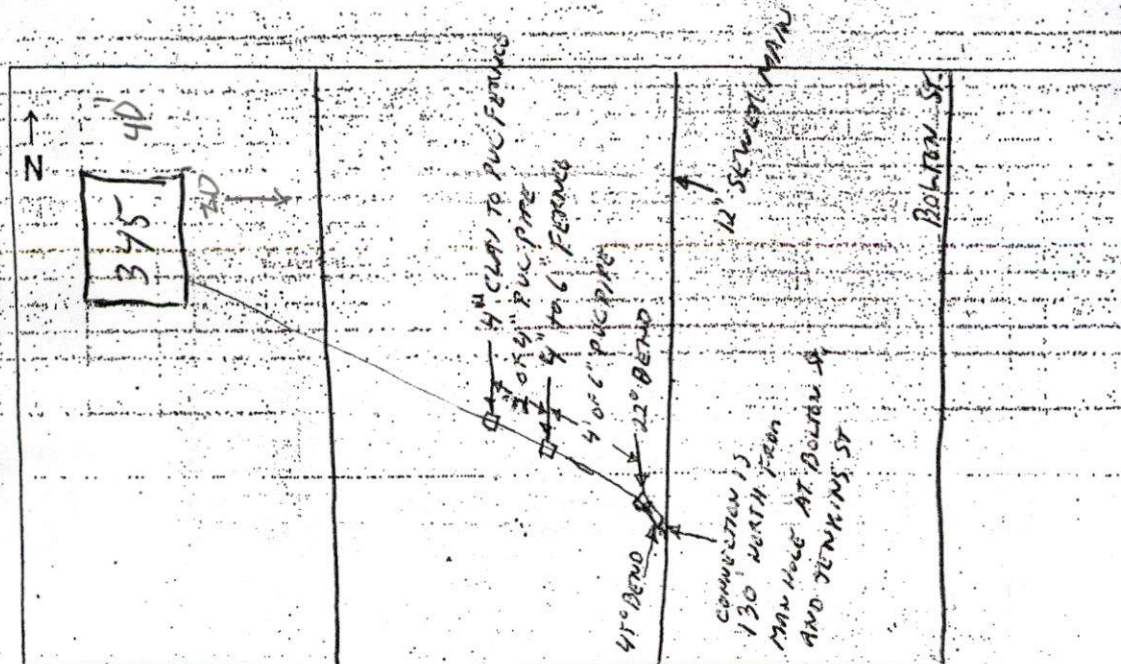 N
345
4" CLAY TO PVC FERNCO
OF 4" PVC PIPE
4" TO 6" FERNCO
4' OF 6" PVC PIPE
22° BEND
45° BEND
12" SEWER MAIN
CONNECTION IS
130' NORTH FROM
MAN HOLE AT BOLTON ST
AND JENKINS ST
BOLTON ST.